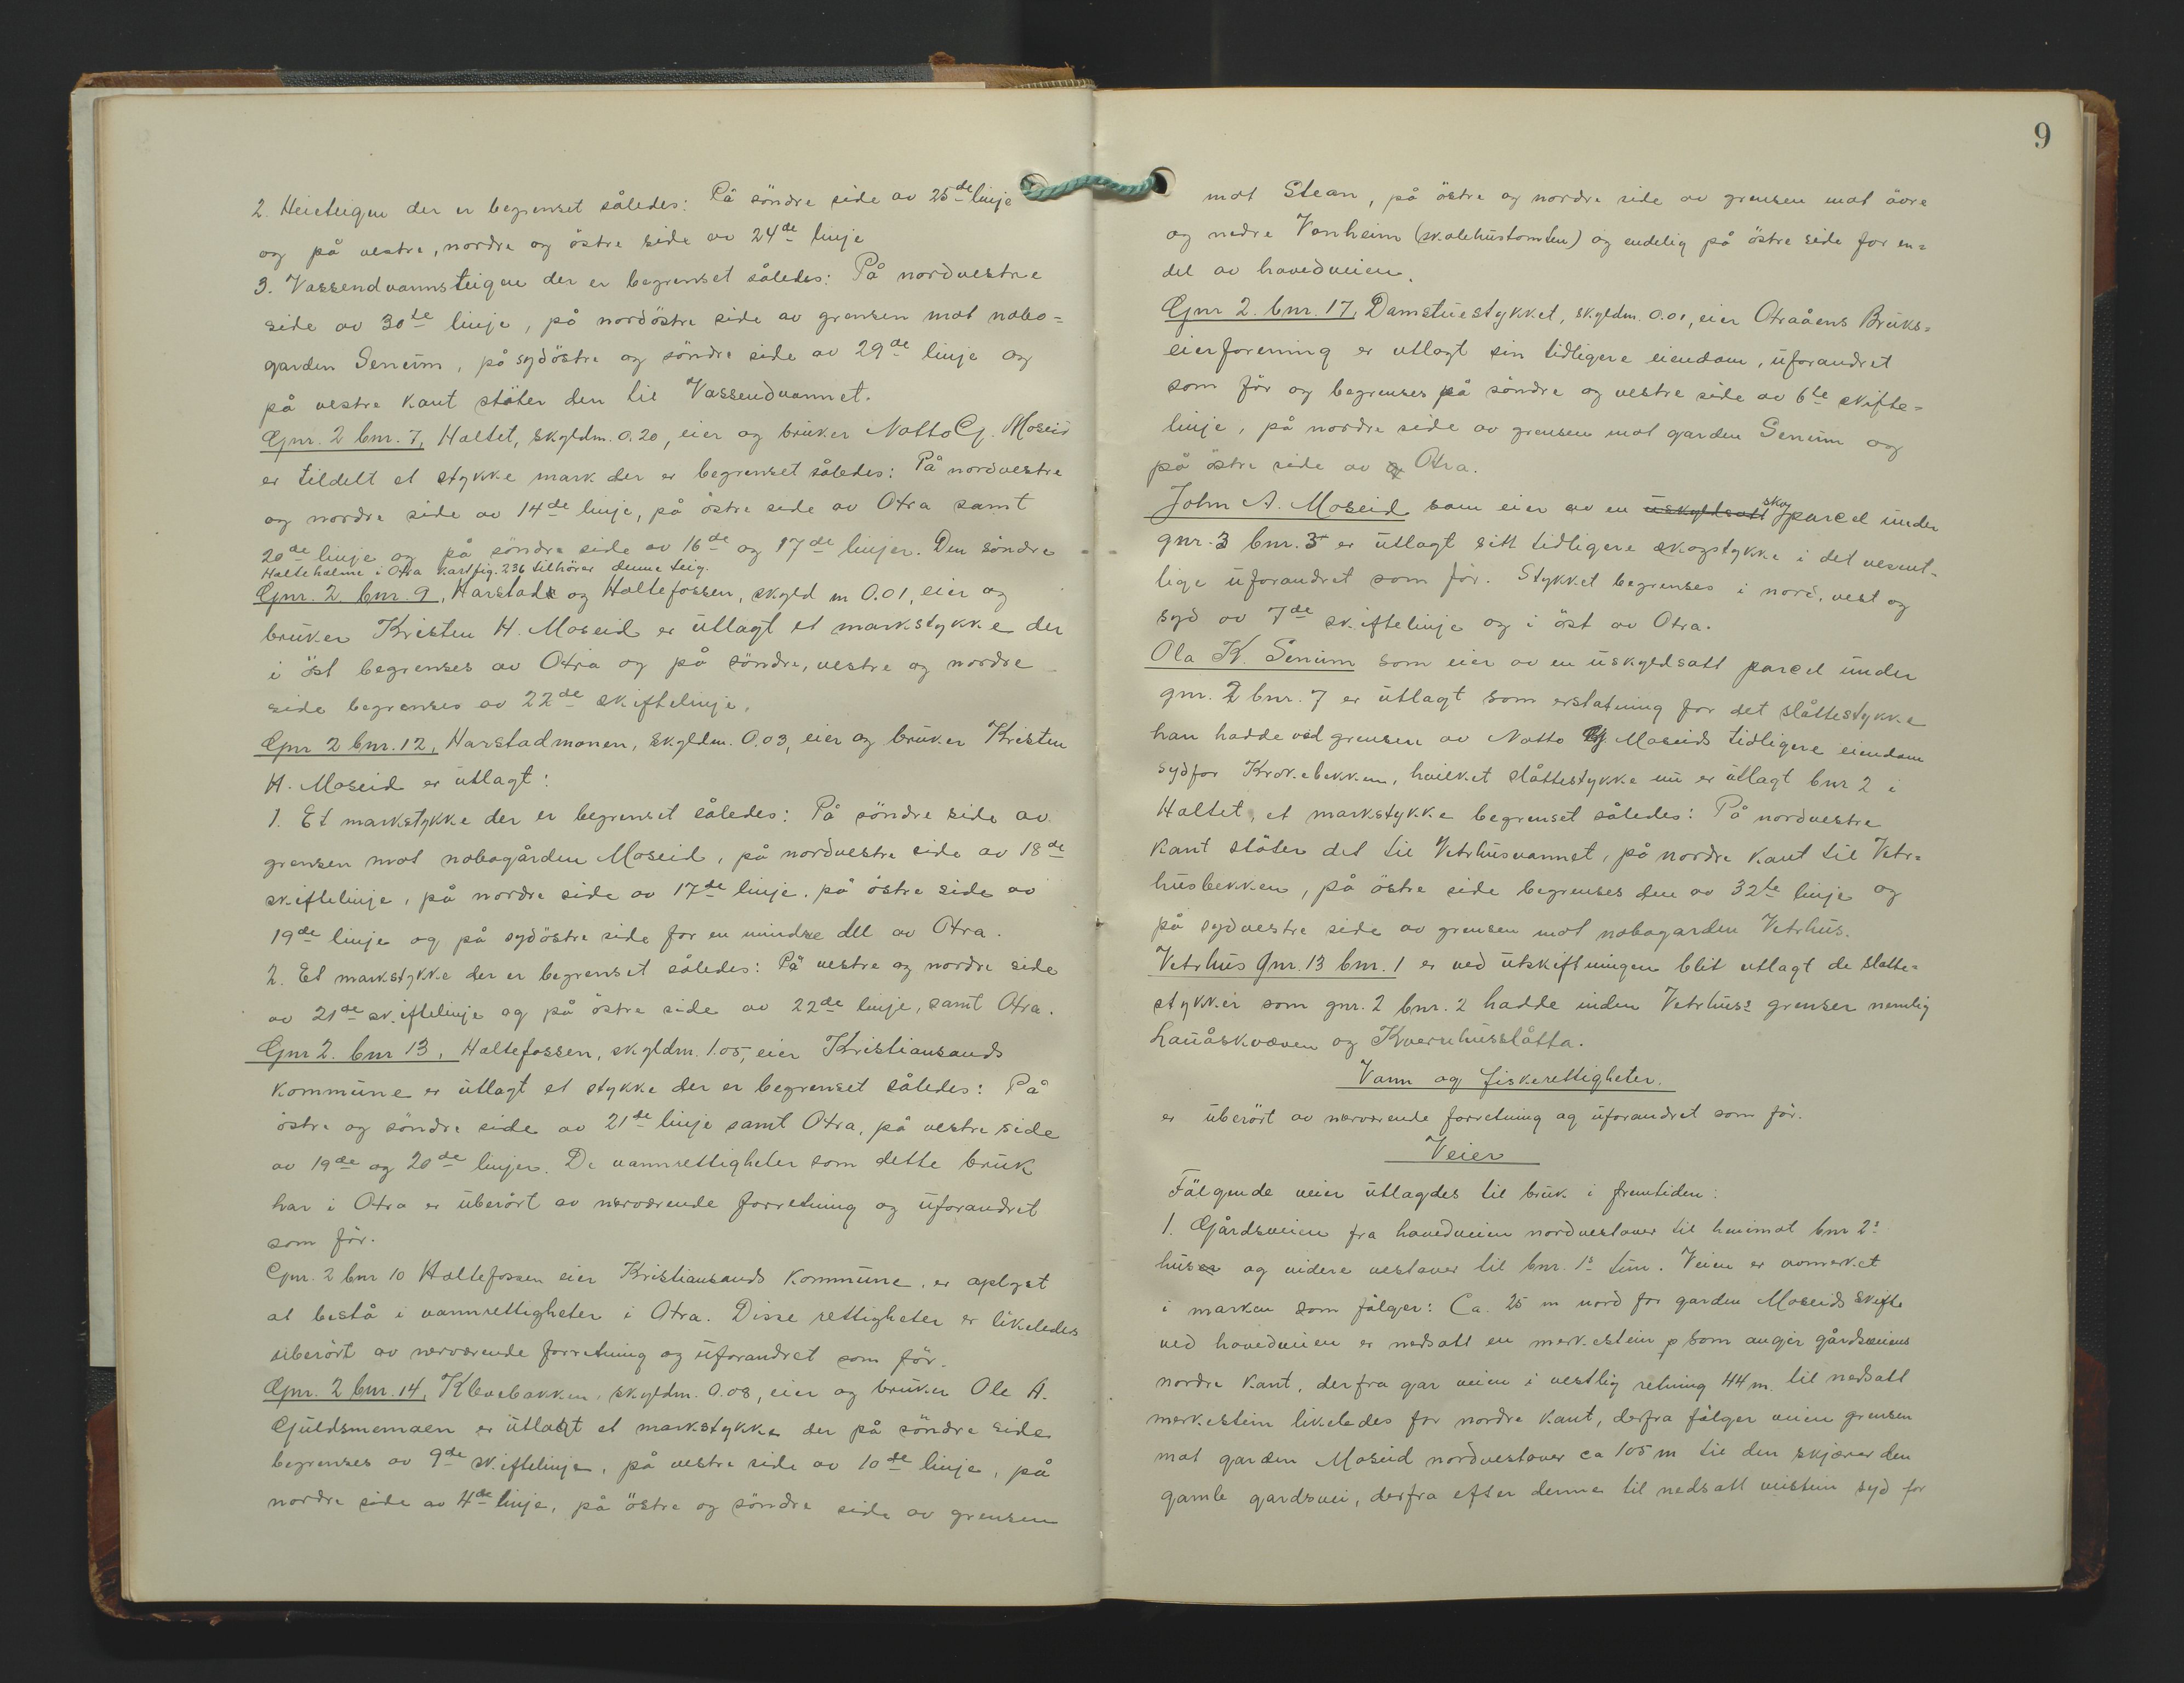 2. Heieteigen der er begrenset således: På söndre side av 25de linje
og på vestre, nordre og östre side av 24de linje
3. Vassendvannsteigen der er begrenset således: På nordvestre
side av 30te linje, på nordöstre side av grensen mot nabo=
garden Senum, på sydöstre og söndre side av 29de linje og
på vestre kant stöter den til Vassendvannet.
Gnr. 2 bnr. 7, Holtet, skyldm. 0.20, eier og bruker Notto G. Moseid
er tildelt et stykke mark der er begrenset således: På nordvestre
og nordre side av 14de linje, på östre side av Otra samt
20de linje og på söndre side av 16de og 17de linjer. Den söndre
Holteholme i Otra kartfig. 236 tilhörer denne teig.
Gnr. 2. bnr. 9, Harstad og Holtefossen, skyld m 0.01, eier og
bruker Kristen H. Moseid er utlagt et markstykke der
i öst begrenses av Otra og på söndre, vestre og nordre
side begrenses av 22de skiftelinje.
Gnr 2 bnr. 12, Harstadmonen, skyldm. 0.03, eier og bruker Kristen
H. Moseid er utlagt:
1. Et markstykke der er begrenset således: På söndre side av
grensen mot nabogården Moseid, på nordvestre side av 18de
skiftelinje, på nordre side av 17de linje, på östre side av
19de linje og på sydöstre side for en mindre del av Otra.
2. Et markstykke der er begrenset således: På vestre og nordre side
av 21de skiftelinje og på östre side av 22de linje, samt Otra.
Gnr 2. bnr 13, Holtefossen, skyldm. 1.05, eier Kristiansands
kommune er utlagt et stykke der er begrenset således: På
östre og söndre side av 21de linje samt Otra, på vestre side
av 19de og 20de linjer. De vannrettigheter som dette bruk
har i Otra er uberört av nærværende forretning og uforandret
som för.
Gnr. 2 bnr 10 Holtefossen eier Kristiansands kommune, er oplyst
at bestå i vannrettigheter i Otra. Disse rettigheter er likeledes
uberört av nærværende forretning og uforandret som för.
Gnr. 2 bnr. 14, Klevebakken, skyldm. 0.08, eier og bruker Ole A.
Guldsmemoen er utlagt et markstykke der på söndre side
begrenses av 9de skiftelinje, på vestre side av 10de linje, på
nordre side av 4de linje, på östre og söndre side av grensen
9
mot Stean, på östre og nordre side av grensen mot övre
og nedre Vonheim (skolehustomten) og endelig på östre side for en=
del av hovedveien.
Gnr 2. bnr. 17, Damstuestykket, skyldm. 0.01, eier Otraåens Bruks=
eierforening er utlagt sin tidligere eiendom, uforandret
som för og begrenses på söndre og vestre side av 6te skifte=
linje, på nordre side av grensen mot garden Senum og
på östre side av Otra.
John A. Moseid som eier av en uskyldsatt skogparcel under
gnr. 3 bnr. 3 er utlagt sitt tidligere skogstykke i det vesent-
lige uforandret som för. Stykket begrenses i nord, vest og
syd av 7de skiftelinje og i öst av Otra.
Ola K. Senum som eier av en uskyldsatt parcel under
gnr. 2 bnr. 7 er utlagt som erstatning for det slåttestykke
han hadde ved grensen av Notto G. Moseids tidligere eiendom
sydfor Krokebekken, hvilket slåttestykke nu er utlagt bnr 2 i
Holtet, et markstykke begrenset således: På nordvestre
kant stöter det til Vetrhusvannet, på nordre kant til Vetr=
husbekken, på östre side begrenses den av 32te linje og
på sydvestre side av grensen mot nabogarden Vetrhus.
Vetrhus Gnr. 13 bnr. 1 er ved utskiftningen blit utlagt de slatte=
stykker som gnr. 2 bnr. 2 hadde inden Vetrhus's grenser nemlig
Lauåskvæven og Kvernhusslåtta.
Vann og fiskerettigheter.
er uberört av nærværende forretning og uforandret som för.
Veier
Fölgende veier utlagdes til bruk i fremtiden:
1. Gårdsveien fra hovedveien nordvestover til henimot bnr 2s
hus og videre vestover til bnr. 1s tun. Veien er avmerket
i marken som fölger: Ca. 25 m nord for garden Moseids skifte
ved hovedveien er nedsatt en merkestein p som angir gårdsveiens
nordre kant, derfra gar veien i vestlig retning 44 m. til nedsatt
merkestein likeledes for nordre kant, derfra fölger veien grensen
mot garden Moseid nordvestover ca 105 m til den skjærer den
gamle gardsvei, derfra efter denne til nedsatt veistein syd for